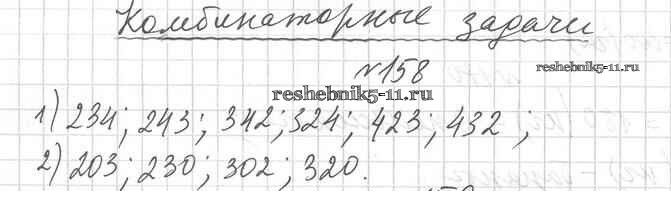 Комбинаторные задачи
№158
reshebnik5-11.ru
reshebnik5-11.ru
1) 234; 243; 342; 324; 423; 432 ;
2) 203; 230; 302; 320.